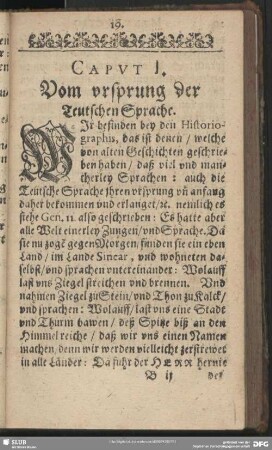 18.
CAPVT I.
Vom vrsprung der
Teutschen Sprache.
WIr befinden bey den Historio-
graphis, das ist denen / welche
von alten Geschichten geschrie-
ben haben / daß viel vnd man-
cherley Sprachen : auch die
Teutsche Sprache jhren vrsprung vñ anfang
daher bekommen vnd erlanget /ꝛc. nemlich es
stehe Gen. 11. also geschrieben : Es hatte aber
alle Welt einerley Zungen / vnd Sprache. Da
sie nu zogē gegen Morgen / funden sie ein eben
Land / im Lande Sinear, vnd wohneten da-
selbst / vnd sprachen vntereinander : Wolauff
last vns Ziegel streichen vnd brennen. Vnd
nahmen Ziegel zu Stein / vnd Thon zu Kalck /
vnd sprachen : Wolauff / last vns eine Stadt
vnd Thurm bawen / deß Spitze biß an den
Himmel reiche / daß wir vns einen Namen
machen / denn wir werden vielleicht zerstrewet
in alle Länder : Da fuhr der HERR hernie
B ij
der
SLUB
DFG